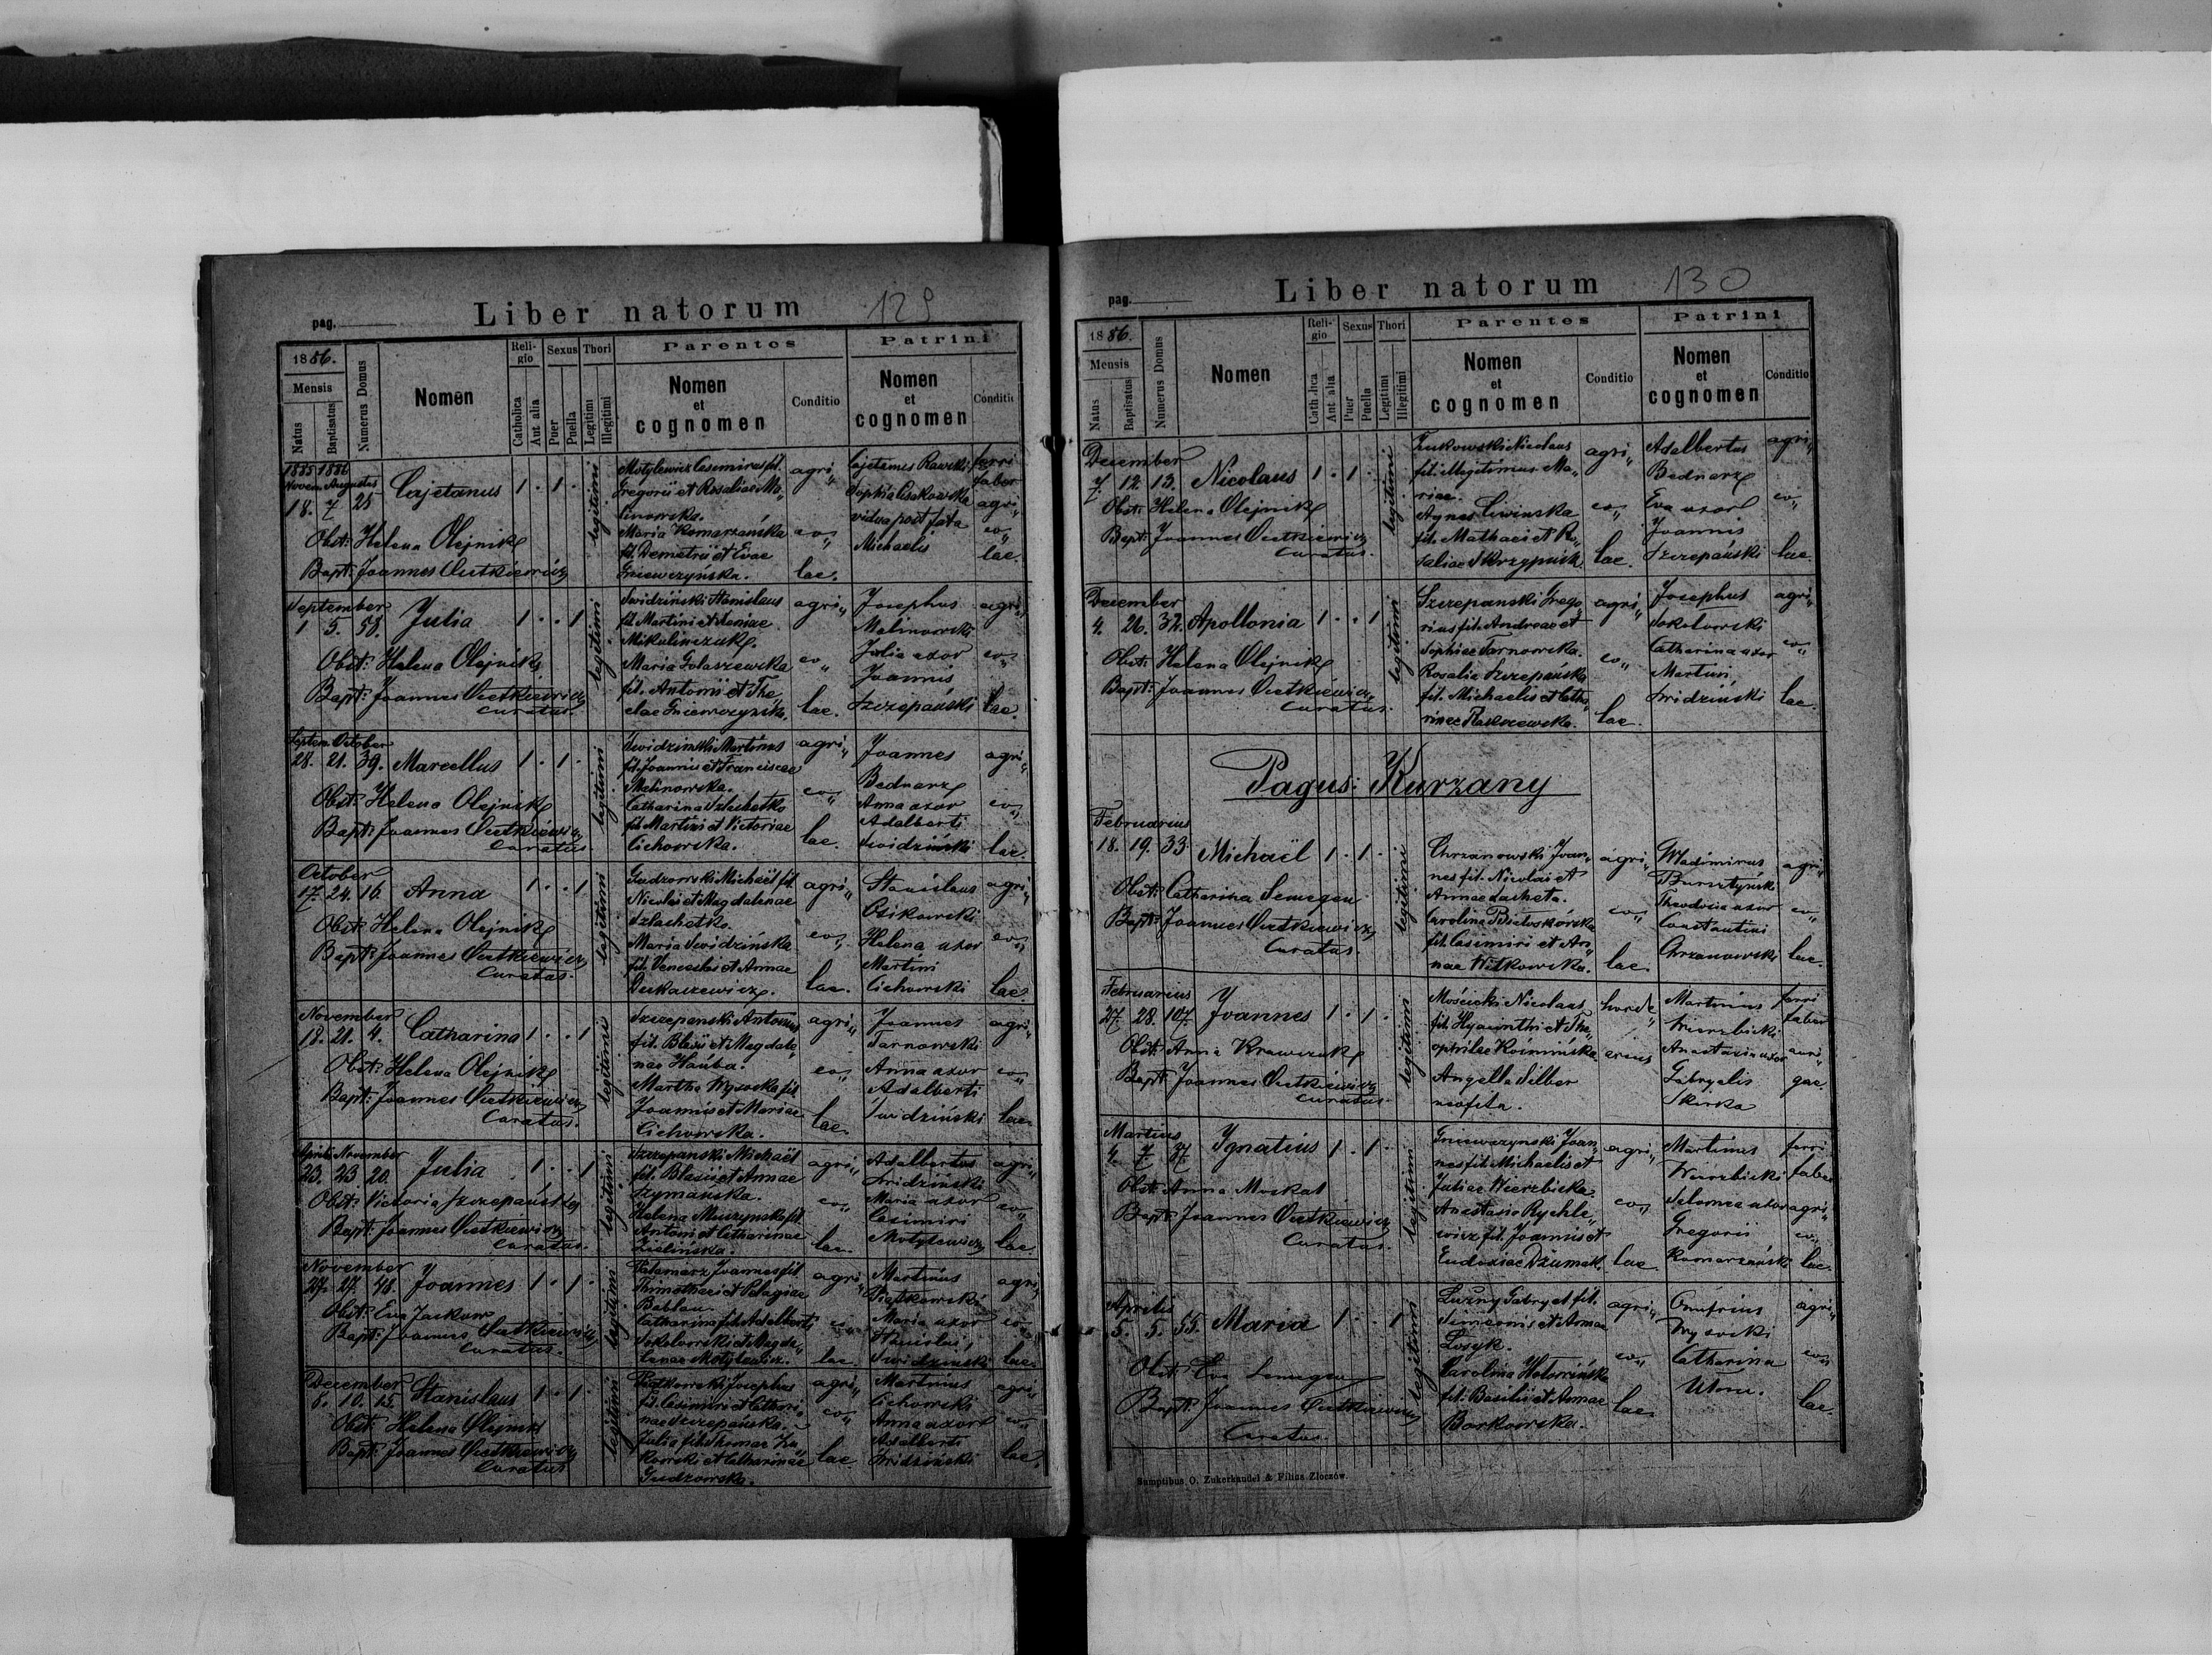 Liber natorum 129
pag.
1886.
Mensis
Natus
Baptisatus
Numerus Domus
Nomen
Religio
Catholica
Aut alia
Sexus
Puer
Puella
Thori
Legitimi
Illegitimi
Parentes
Nomen et cognomen
Conditio
Patrini
Nomen et cognomen
Conditio
1885 1886
Novem Augustus
18. 7 25 Cajetanus 1 . 1 .
legitimi
Obst: Helena Olejnik
Bapt: Joannes Oertkiewicz
Motylewicz Casimirus fil.
Gregorii et Rosaliae Ma„
linowska.
Maria Komarzańska
fil. Demetrii et Evae
Gniewczyńska.
agri„
eo„
lae.
Cajetanus Rawski
Sophia
vidua post fata
Michaelis
ferri
faber
agri„
eo„
lae.
September
1 5. 58. Julia 1 . . 1
legitimi
Obst: Helena Olejnik
Bapt: Joannes Oertkiewicz
Curatus.
Swidziński Stanislaus
fil. Martini et
Mikulinczak.
Maria Golaszewska
fil. Antonii et The
clae Gniewczyńska.
agri„
eo„
lae.
Josephus
Malinowski
Julia uxor
Joannis
Szczepański
agri„
eo„
lae.
Septem October
28. 21. 39. Marcellus 1 . 1 .
legitimi
Obst: Helena Olejnik
Bapt: Joannes Oertkiewicz
Curatus.
Swidzinski Martinus
fil. Joannis et Franciscae
Malinowska.
Catharina Szlachetko
fil. Martini et Victoriae
Cichowska.
agri„
eo„
lae.
Joannes
Bednarz
Anna uxor
Adalberti
Swidziński
agri„
eo„
lae.
October
17. 24. 16. Anna 1 . . 1
legitimi
Obst: Helena Olejnik
Bapt: Joannes Oertkiewicz
Curatus.
Gudzowski Michaël fil.
Nicolai et Magdalenae
Szlachetko.
Maria Swidzińska
fil. Venceslai et Annae
agri„
eo„
lae.
Stanislaus
Helena uxor
Martini
Cichowski
agri„
eo„
lae.
November
18. 21. 4. Catharina 1 . . 1
legitimi
Obst: Helena Olejnik
Bapt: Joannes Oertkiewicz
Curatus.
Szczepanski Antonius
fil. Blasii et Magdale„
nae
Martha Wysocka fil.
Joannis et Mariae
Cichowska.
agri„
eo„
lae.
Joannes
Tarnowski
Anna uxor
Adalberti
Swidziński
agri„
eo„
lae.
Aprilis November
23. 23. 20. Julia 1 . . 1
legitimi
Obst: Victoria Szczepańska
Bapt: Joannes Oertkiewicz
Curatus.
Szczepanski Michaël
fil. Blasii et Annae
Szymańska.
Helena Muszynska fil.
Antoni et Catharinae
Zielińska.
agri„
eo„
lae.
Adalbertus
Swidzinski
Maria uxor
Casimiri
Motylewicz
agri„
eo„
lae.
November
27. 27. 48. Joannes 1 . 1 .
legitimi
Obst: Eva
Bapt: Joannes Oertkiewicz
Curatus.
Joannes fil.
Thimothaei et Pelagiae
Catharina fil. Adalberti
Sokolowski et Magda„
lenae Motylewicz.
agri„
eo„
lae.
Martinus
Piątkowski
Maria uxor
Swidzinski
agri„
eo„
lae.
December
8. 10. 15. Stanislaus 1 . 1 .
legitimi
Obst: Helena Olejnik
Bapt: Joannes Oertkiewicz
Curatus
Piątkowski Josephus
fil. Casimiri et Cathari„
nae Szczepańska.
Julia fil. Thomae Zu„
kowski et Catharinae
Gudzowska.
agri„
eo„
lae.
Martinus
Cichowski
Anna uxor
Adalberti
Swidziński
agri„
eo„
lae.
Liber natorum 130
pag.
1886.
Mensis
Natus
Baptisatus
Numerus Domus
Nomen
Religio
Catholica
Aut alia
Sexus
Puer
Puella
Thori
Legitimi
Illegitimi
Parentes
Nomen et cognomen
Conditio
Patrini
Nomen et cognomen
Conditio
December
7. 12. 13. Nicolaus 1 . 1 .
legitimi
Obst: Helena Olejnik
Bapt: Joannes Oertkiewicz
Curatus.
Zukowski Nicolaus
fil. illegitimus Ma„
riae.
Agnes Liwinska
fil. Mathaei et Ro„
saliae Skrzypnik
agri„
eo„
lae.
Adalbertus
Bednarz
Eva uxor
Joannis
Szczepański
agri„
eo„
lae.
December
4. 26. 32. Apollonia 1 . . 1
legitimi
Obst: Helena Olejnik
Bapt: Joannes Oertkiewicz
Curatus.
Szczepanski Grego„
rius fil. Andreae et
Sophiae Tarnowska.
Rosalia Szczepańska
fil. Michaelis et Catha„
rinae
agri„
eo„
lae.
Josephus
Sokolowski
Catharina uxor
Martini
Swidziński
agri„
eo„
lae.
Pagus: Kurzany
Februarius
18. 19. 33 Michaël 1 . 1 .
legitimi
Obst: Catharina Semegen
Bapt: Joannes Oertkiewicz
Curatus.
Chrzanowski Joan„
nes fil. Nicolai et
Annae
Carolina Białoskórska
fil. Casimiri et An„
nae Witkowska.
agri„
eo„
lae.
Wladimirus
Bursztyński
Theodosia uxor
Constantini
Chrzanowski
agri„
eo„
lae.
Februarius
27. 28. 107. Joannes 1 . 1 .
legitimi
Obst: Anna Krawczuk
Bapt: Joannes Oertkiewicz
Curatus.
Mościcki Nicolaus
fil. Hyacinthi et The„
ophilae Koźmińska
Angella Silber
neofita.
horde„
arius
Martinus
Wierzbicki
Anastasia uxor
Gabryelis
Skirka
ferri
faber
auri„
gae.
Martius
4. 7. 27. Ignatius 1 . 1 .
legitimi
Obst: Anna Moskal
Bapt: Joannes Oertkiewicz
Curatus.
Gniewczynski Joan„
nes fil. Michaelis et
Juliae Wierzbicka.
Anastasia Rychle„
wicz fil. Joannis et
Eudoxiae Dziumak.
agri„
eo„
lae.
Martinus
Wierzbicki
Salomea uxor
Gregorii
Komarzański
ferri
faber
agri„
eo„
lae.
Aprilis
5. 5. 55. Maria 1 . . 1
legitimi
Obst: Eva Semegen
Bapt: Joannes Oertkiewicz
Curatus.
Luzny Gabryel fil.
Simeonis et Annae
Losyk.
Karolina Hotowińska
fil: Basilii et Annae
Borkowska.
agri„
eo„
lae.
Onufrius
Wysocki
Catharina
agri„
eo„
lae.
Sumptibus O. Zukerkandel & Filius Złoczów.